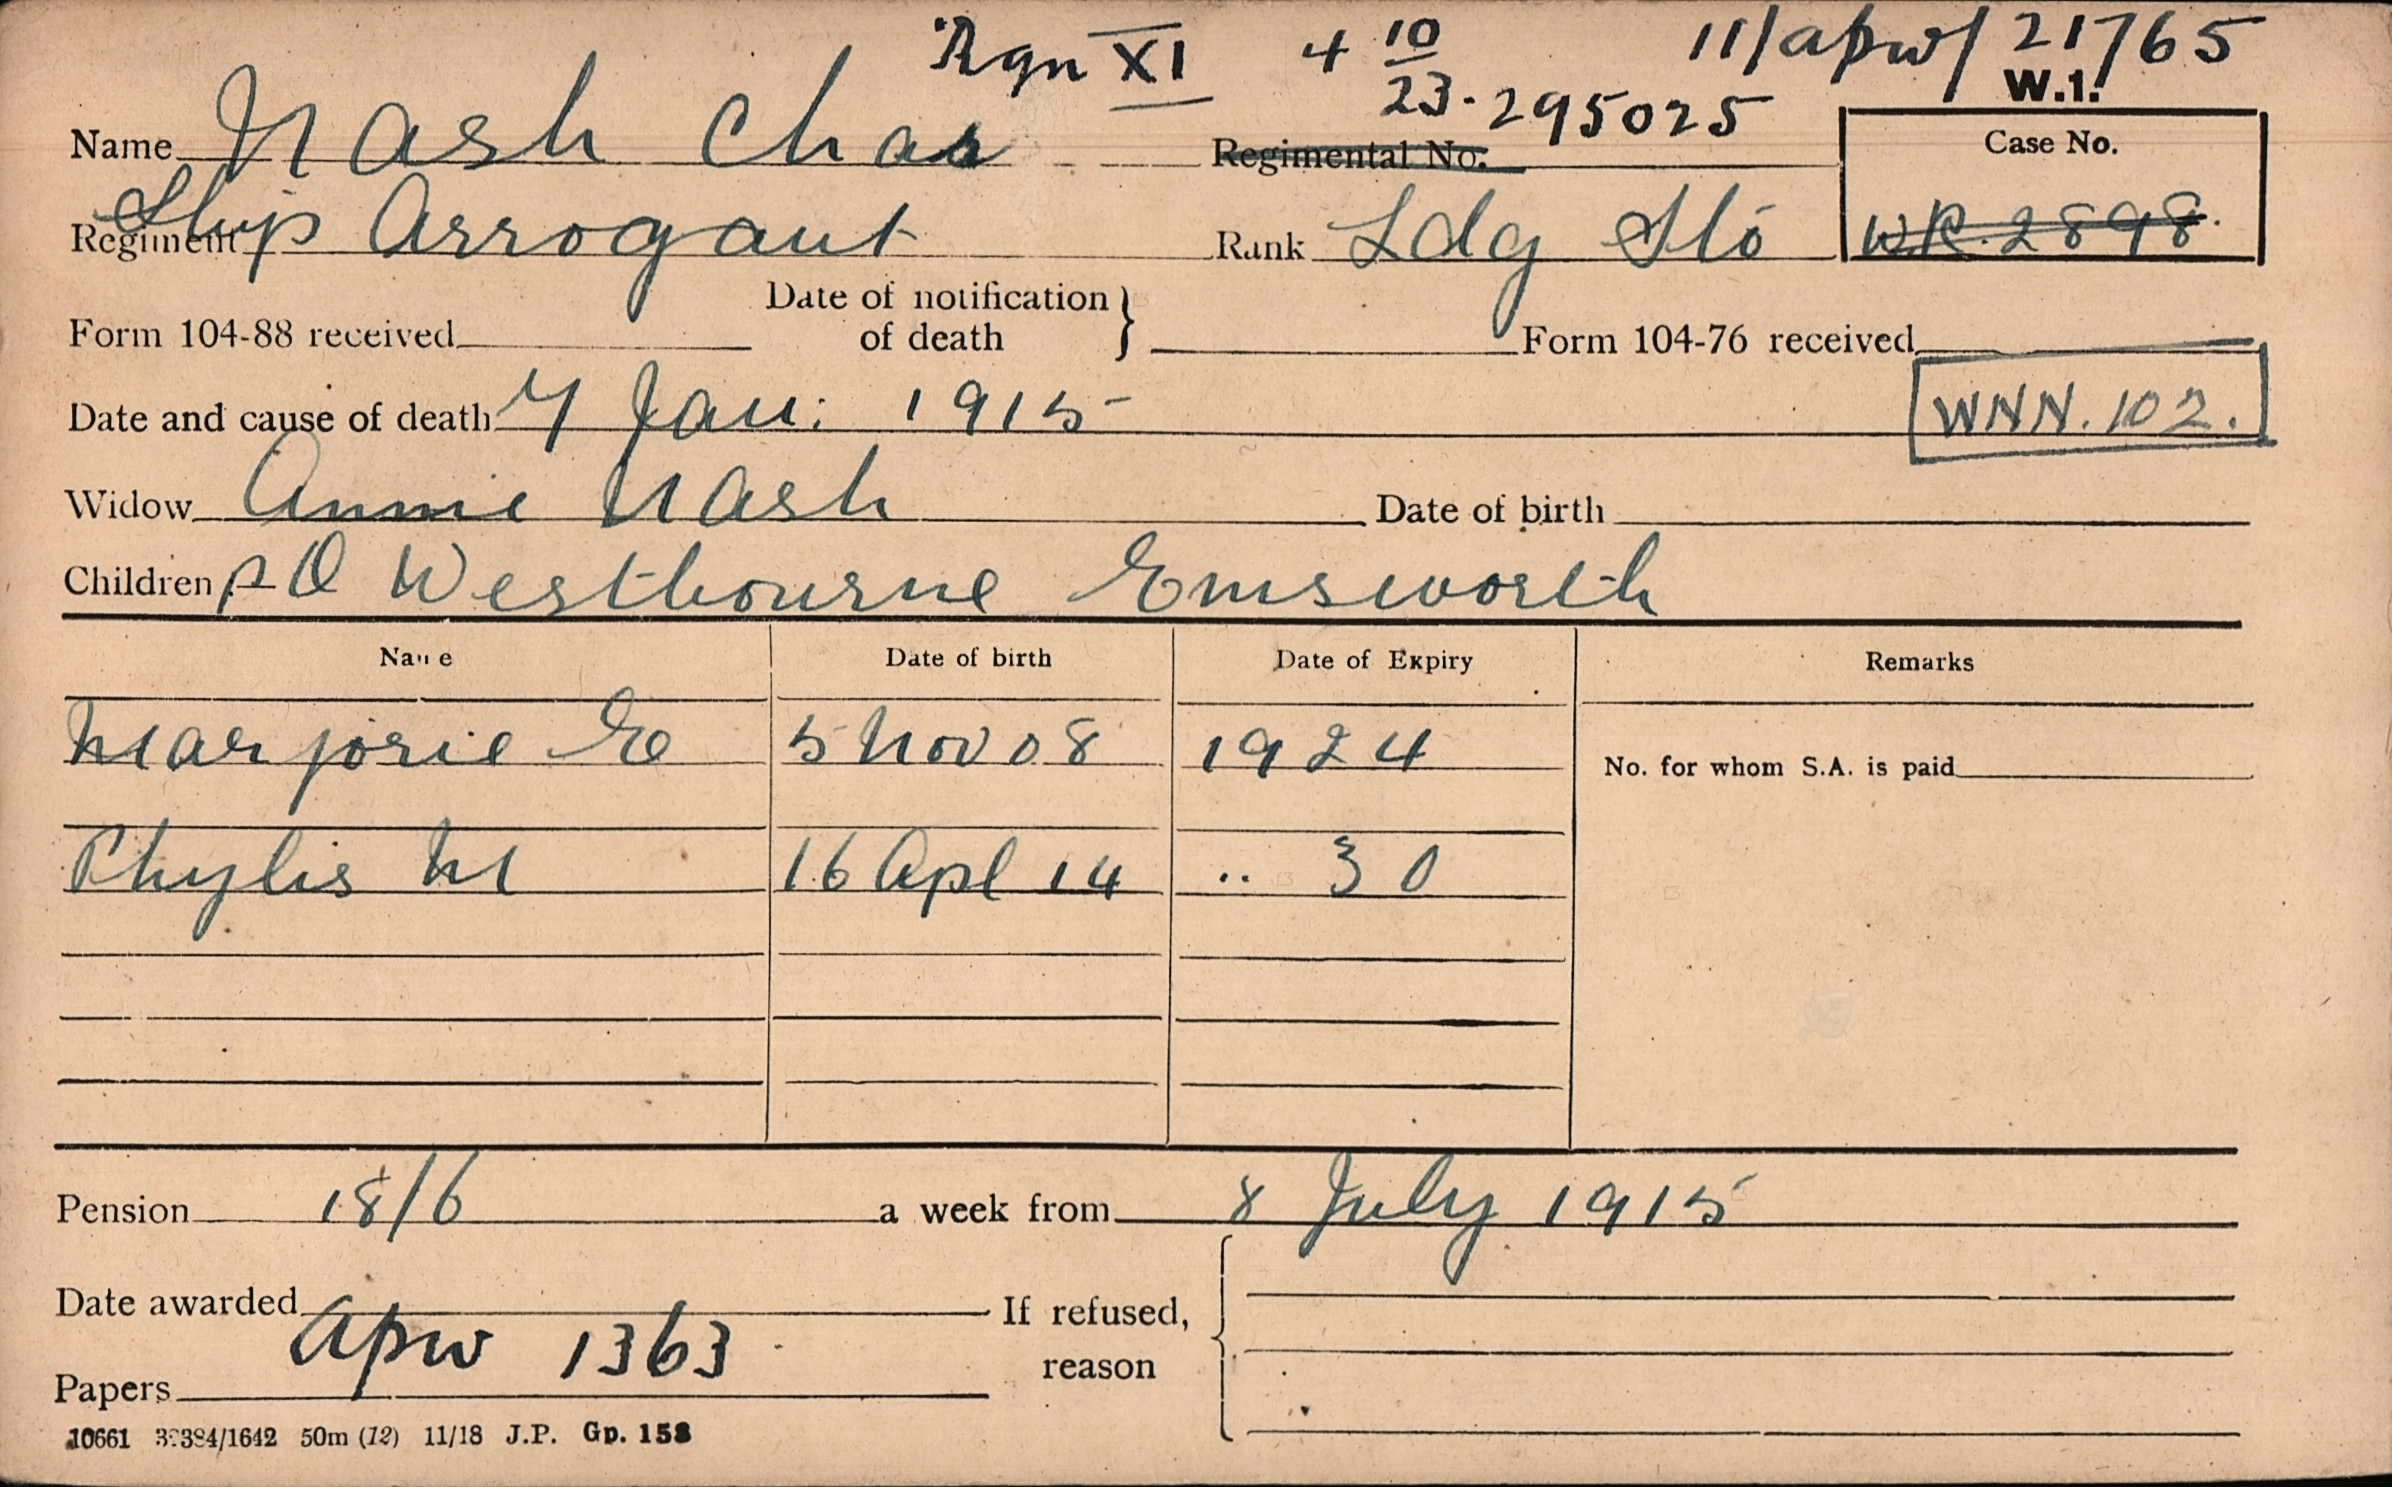 Rgn XI 4 10/23 11/apw/21765
W.1.
Name Nash Chas Regimental No. 295025 Case No.
Regiment Ship Arrogant Rank Ldg Sto WR.2898.
Form 104-88 received Date of notification of death } Form 104-76 received
Date and cause of death 7 Jan: 1915 WNN.102.
Widow Annie Nash Date of birth
Children PO Westbourne Emsworth
Name Date of birth Date of Expiry Remarks
Marjorie E 5 Nov 08 1924 No. for whom S.A. is paid
Phylis M 16 Apl 14 .. 30
Pension 18/6 a week from 8 July 1915
Date awarded If refused, reason
Papers apw 1363
10661 /1642 50m (12) 11/18 J.P. Gp. 158